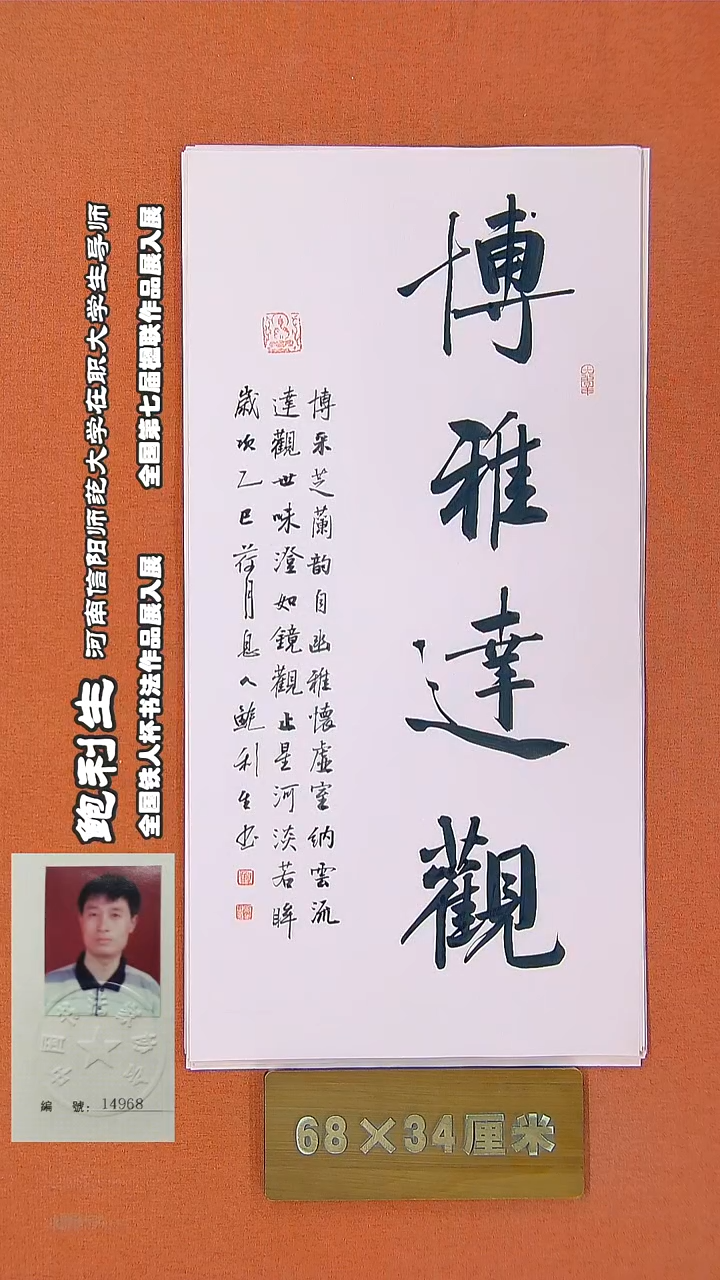 博雅達觀
博采芝蘭韵自幽雅懷虛室纳雲流
達觀世味澄如鏡觀止星河淡若眸
歲次乙巳荷月息人鮑利生书
鲍利生 河南信阳师范大学在职大学生导师
全国铁人杯书法作品展入展 全国第七届楹联作品展入展
編 號: 14968
68×34厘米